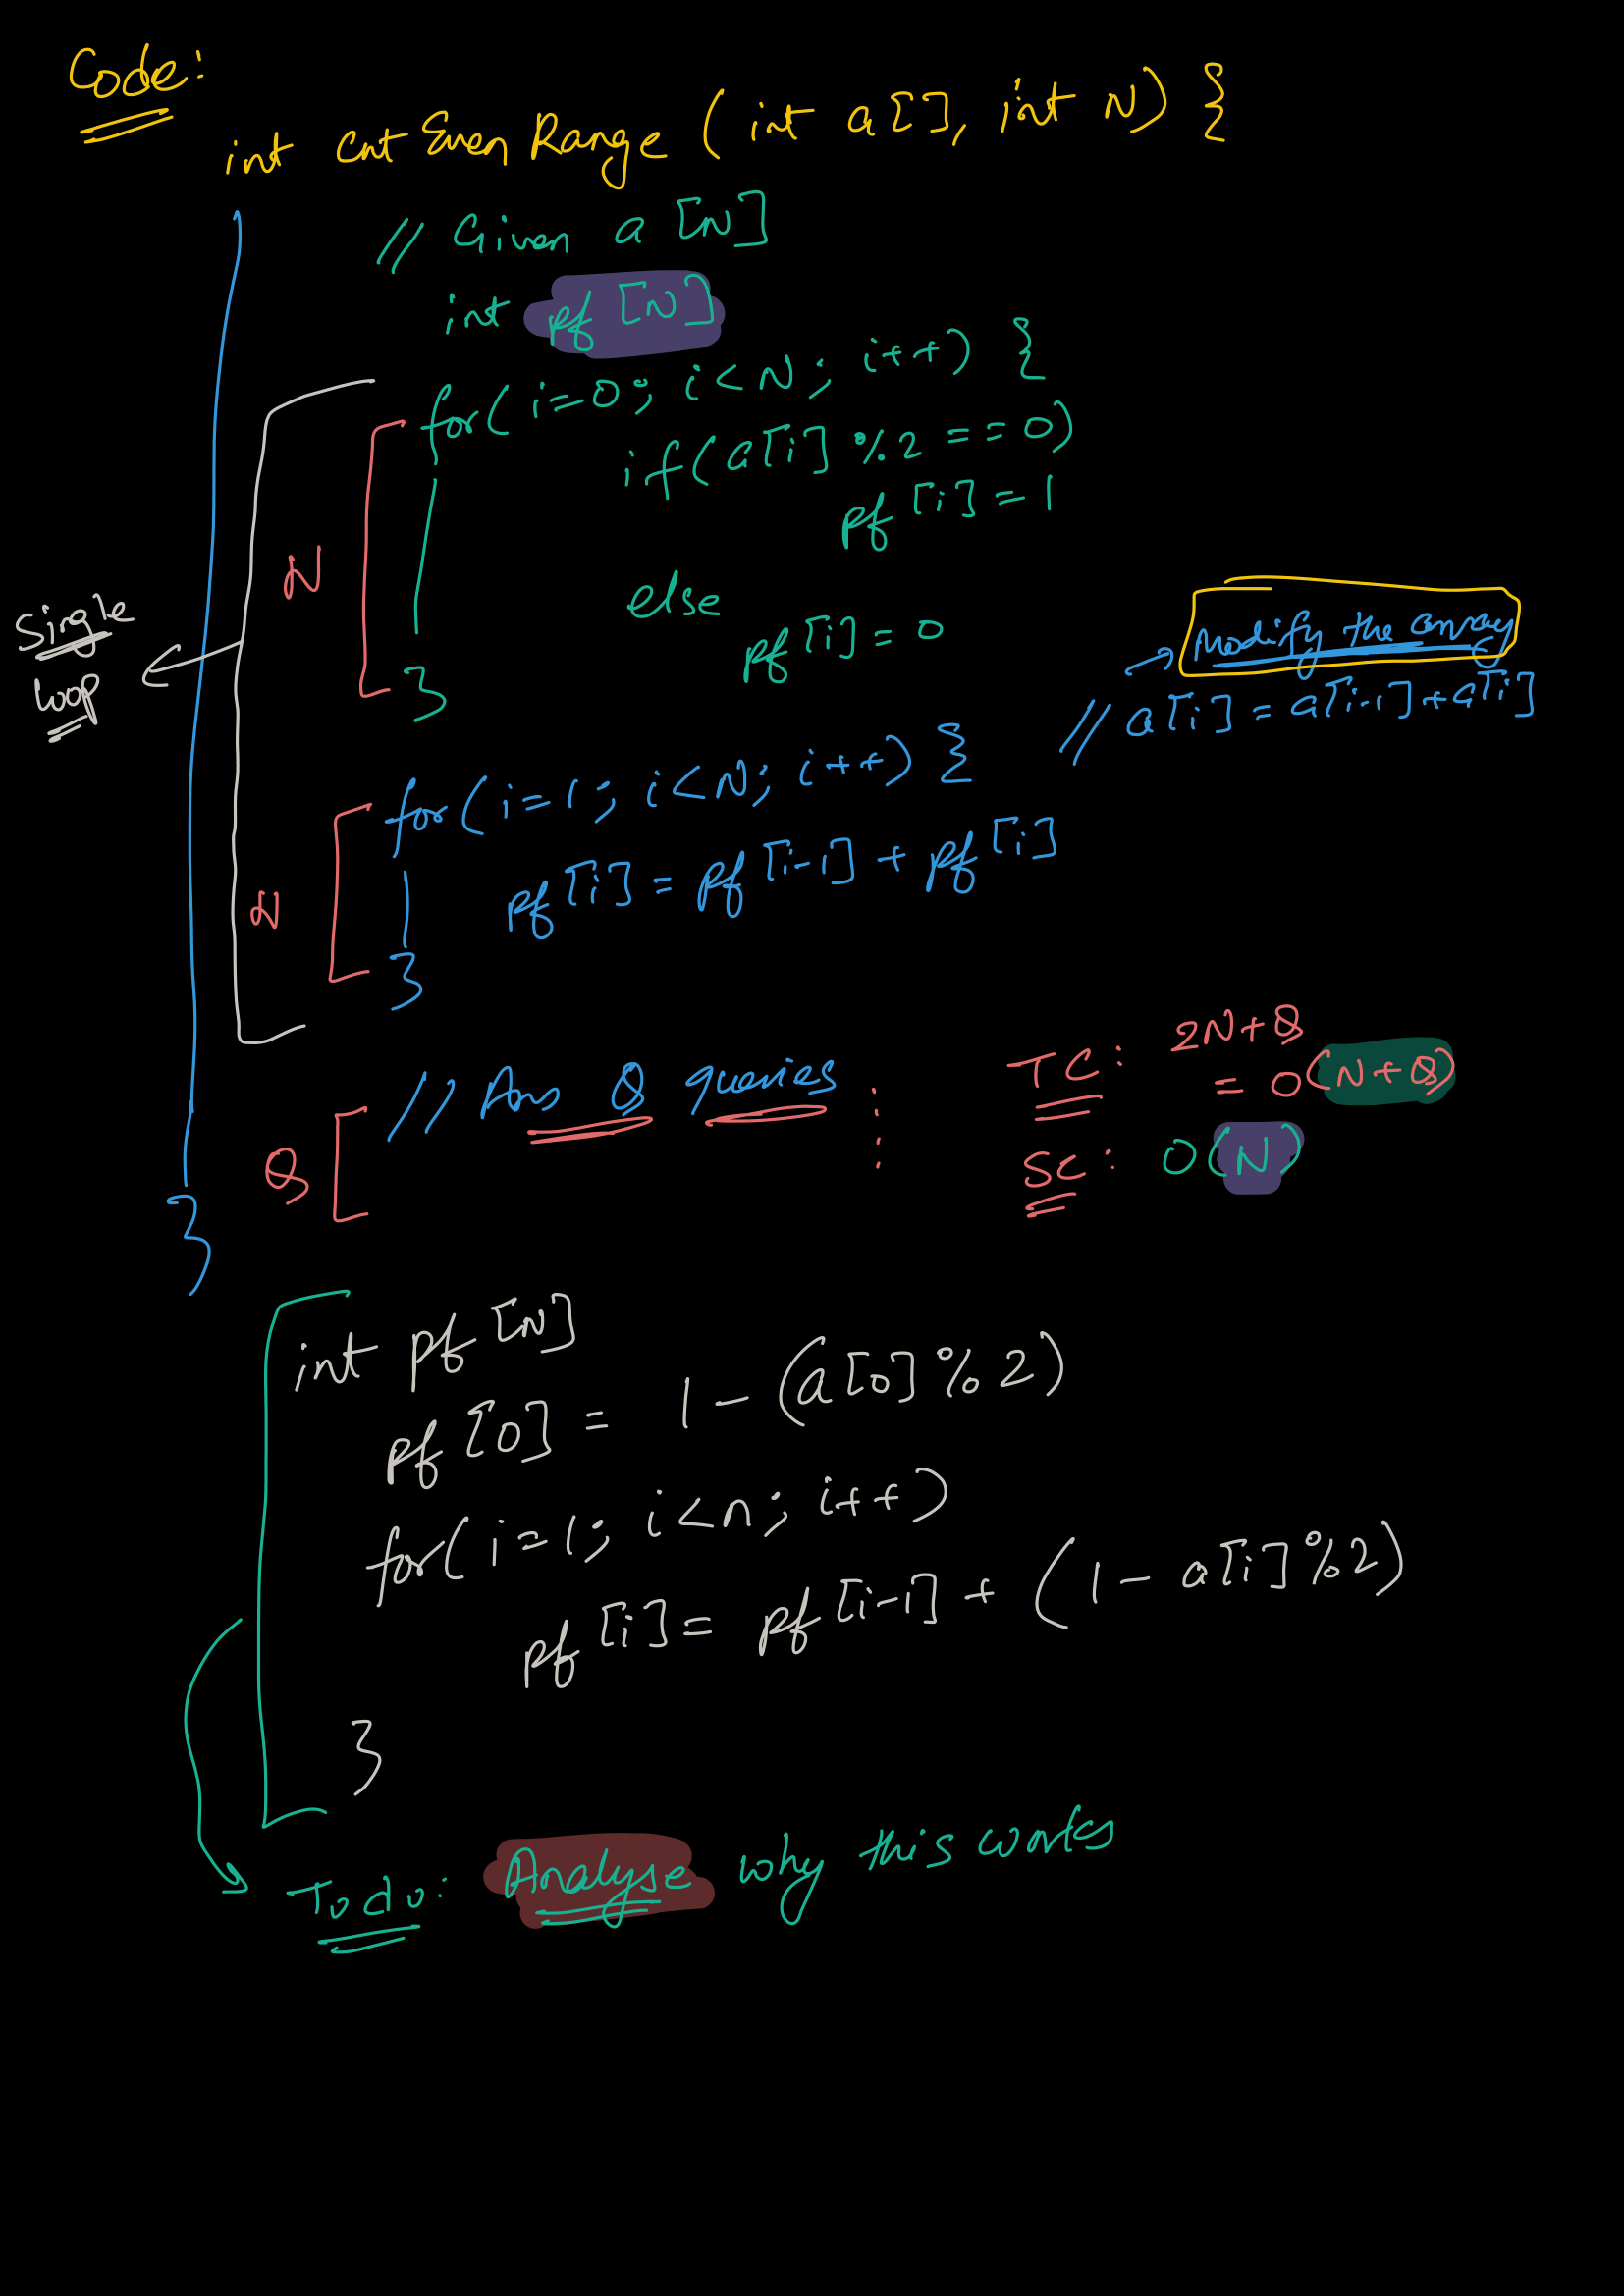 Code:
int CntEvenRange (int a[], int N) {
// Given a [N]
int pf [N]
for(i=0; i<N; i++) {
if(a[i] % 2 == 0)
pf [i] = 1
else
pf [i] = 0
}
N
Single
Loop
→ Modify the array
// a[i] = a[i-1] + a[i]
for(i=1; i<N; i++) {
pf [i] = pf [i-1] + pf [i]
}
N
// Ans Q queries
Q
}
TC: 2N+Q
= O(N+Q)
SC: O(N)
int pf [N]
pf [0] = 1 - (a[0] % 2)
for(i=1; i<n; i++)
pf [i] = pf [i-1] + (1 - a[i] % 2)
}
Todo: Analyse why this works